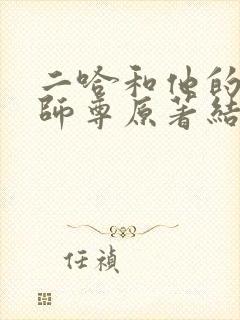 二哈和他的
師尊原著結
任禎